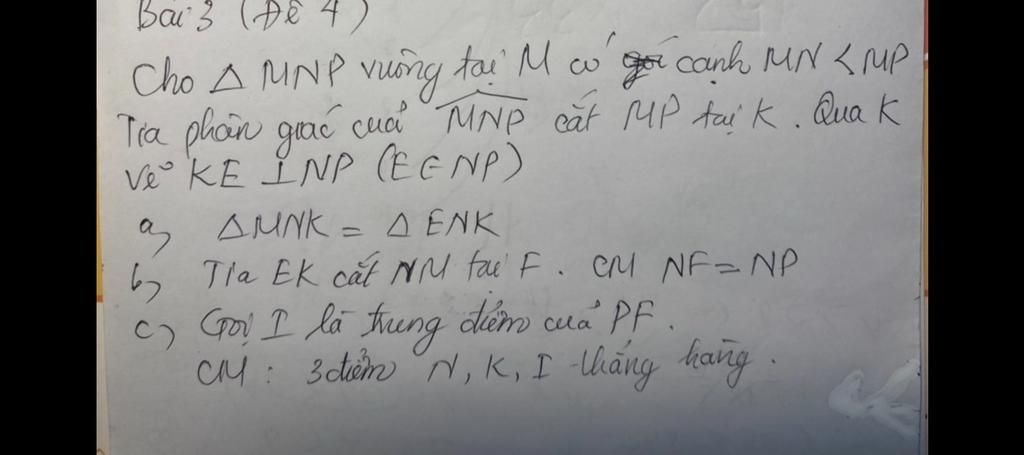 Bài 3 (Đề 4)
Cho Δ MNP vuông tại M có cạnh MN < MP
Tia phân giác của MNP cắt MP tại K. Qua K
vẽ KE ⊥ NP (E ∈ NP)
a, Δ MNK = Δ ENK
b, Tia EK cắt NM tại F. CM NF = NP
c, Gọi I là trung điểm của PF.
CM: 3 điểm N, K, I thẳng hàng.